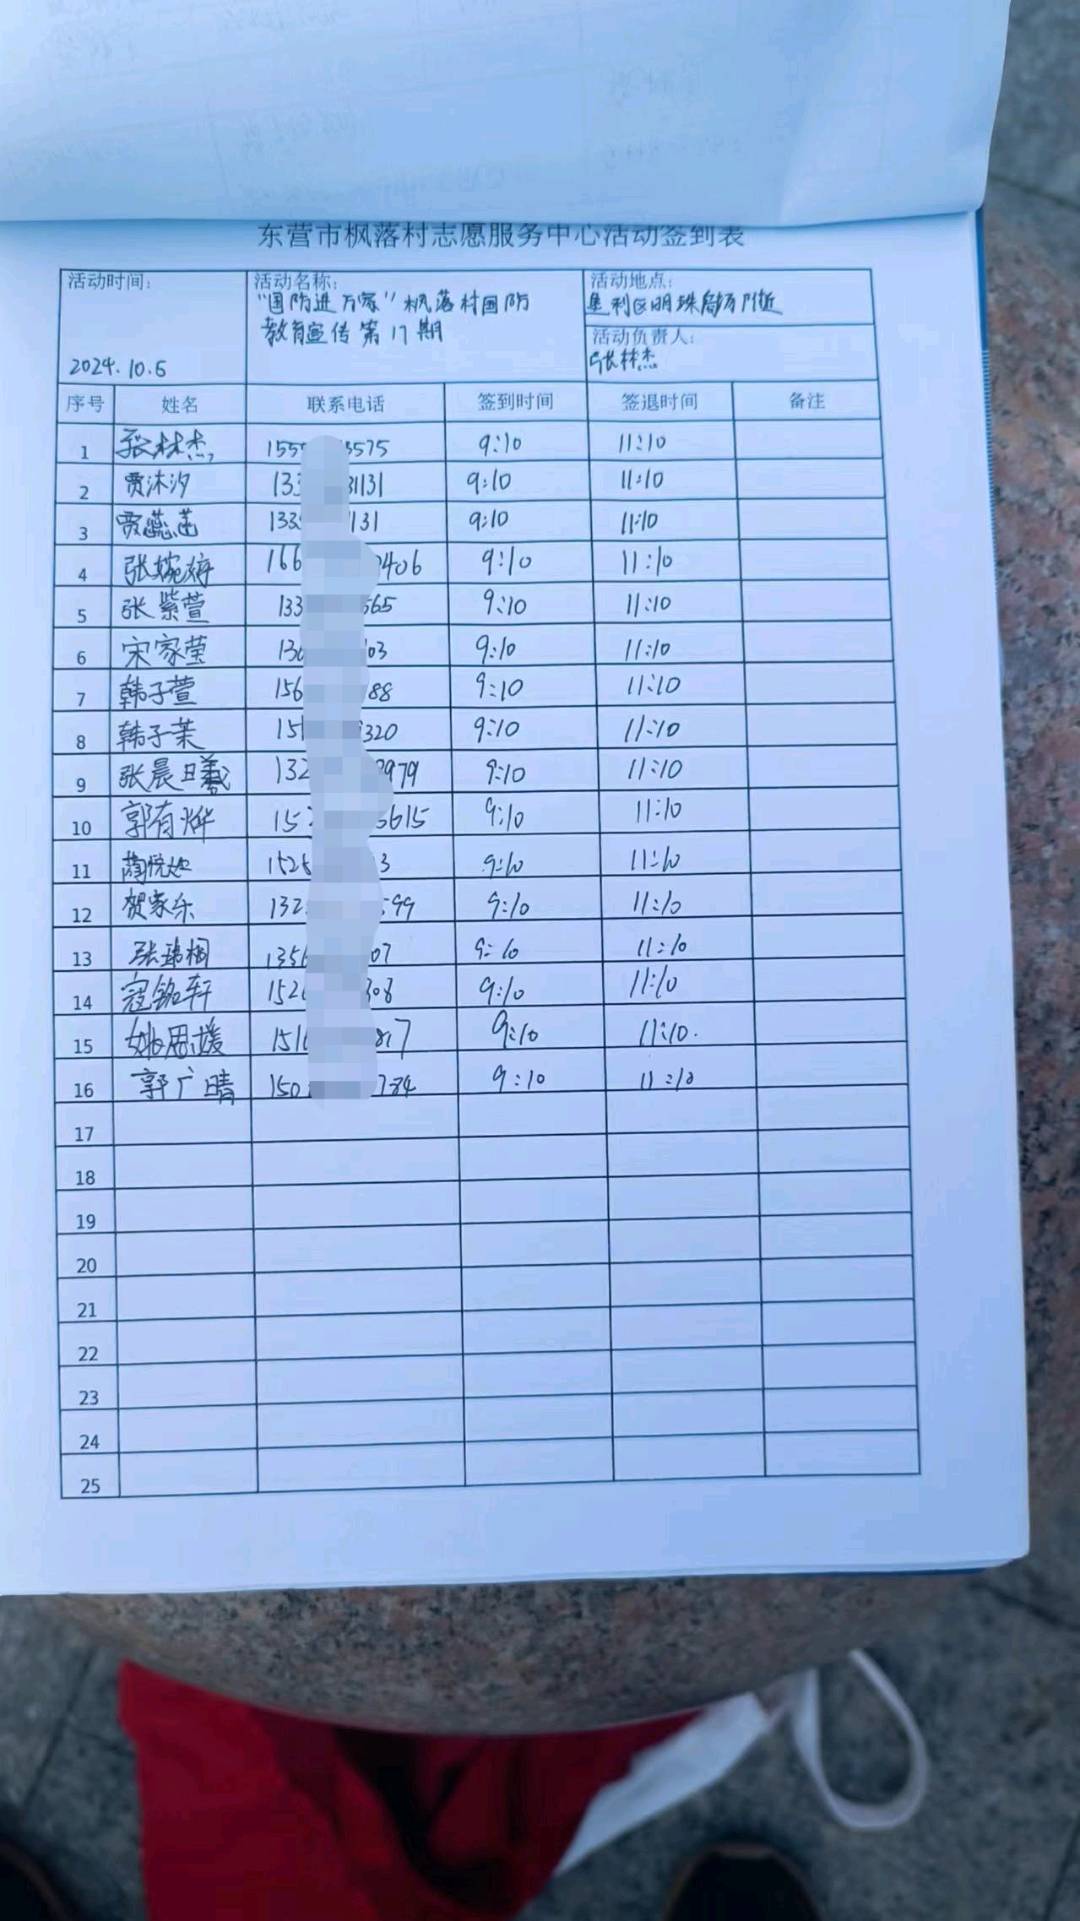 东营市枫落村志愿服务中心活动签到表
活动时间: 活动名称: 活动地点:
"国防进万家"枫落村国防 垦利区明珠广场附近
教育宣传第17期 活动负责人:
2024.10.5 张林杰
序号 姓名 联系电话 签到时间 签退时间 备注
1 张林杰 155 3575 9:10 11:10
2 贾沐汐 133 31131 9:10 11:10
3 贾蕊菡 133 131 9:10 11:10
4 张婉婷 166 406 9:10 11:10
5 张紫萱 133 565 9:10 11:10
6 宋家莹 130 03 9:10 11:10
7 韩子萱 156 88 9:10 11:10
8 韩子茉 15 320 9:10 11:10
9 张晨曦 132 979 9:10 11:10
10 郭有烨 15 5615 9:10 11:10
11 1526 3 9:10 11:10
12 贺家乐 132 599 9:10 11:10
13 张 桐 1356 07 9:10 11:10
14 寇铭轩 152 308 9:10 11:10
15 姚思媛 151 817 9:10 11:10.
16 郭广晴 150 784 9:10 11:10
17
18
19
20
21
22
23
24
25